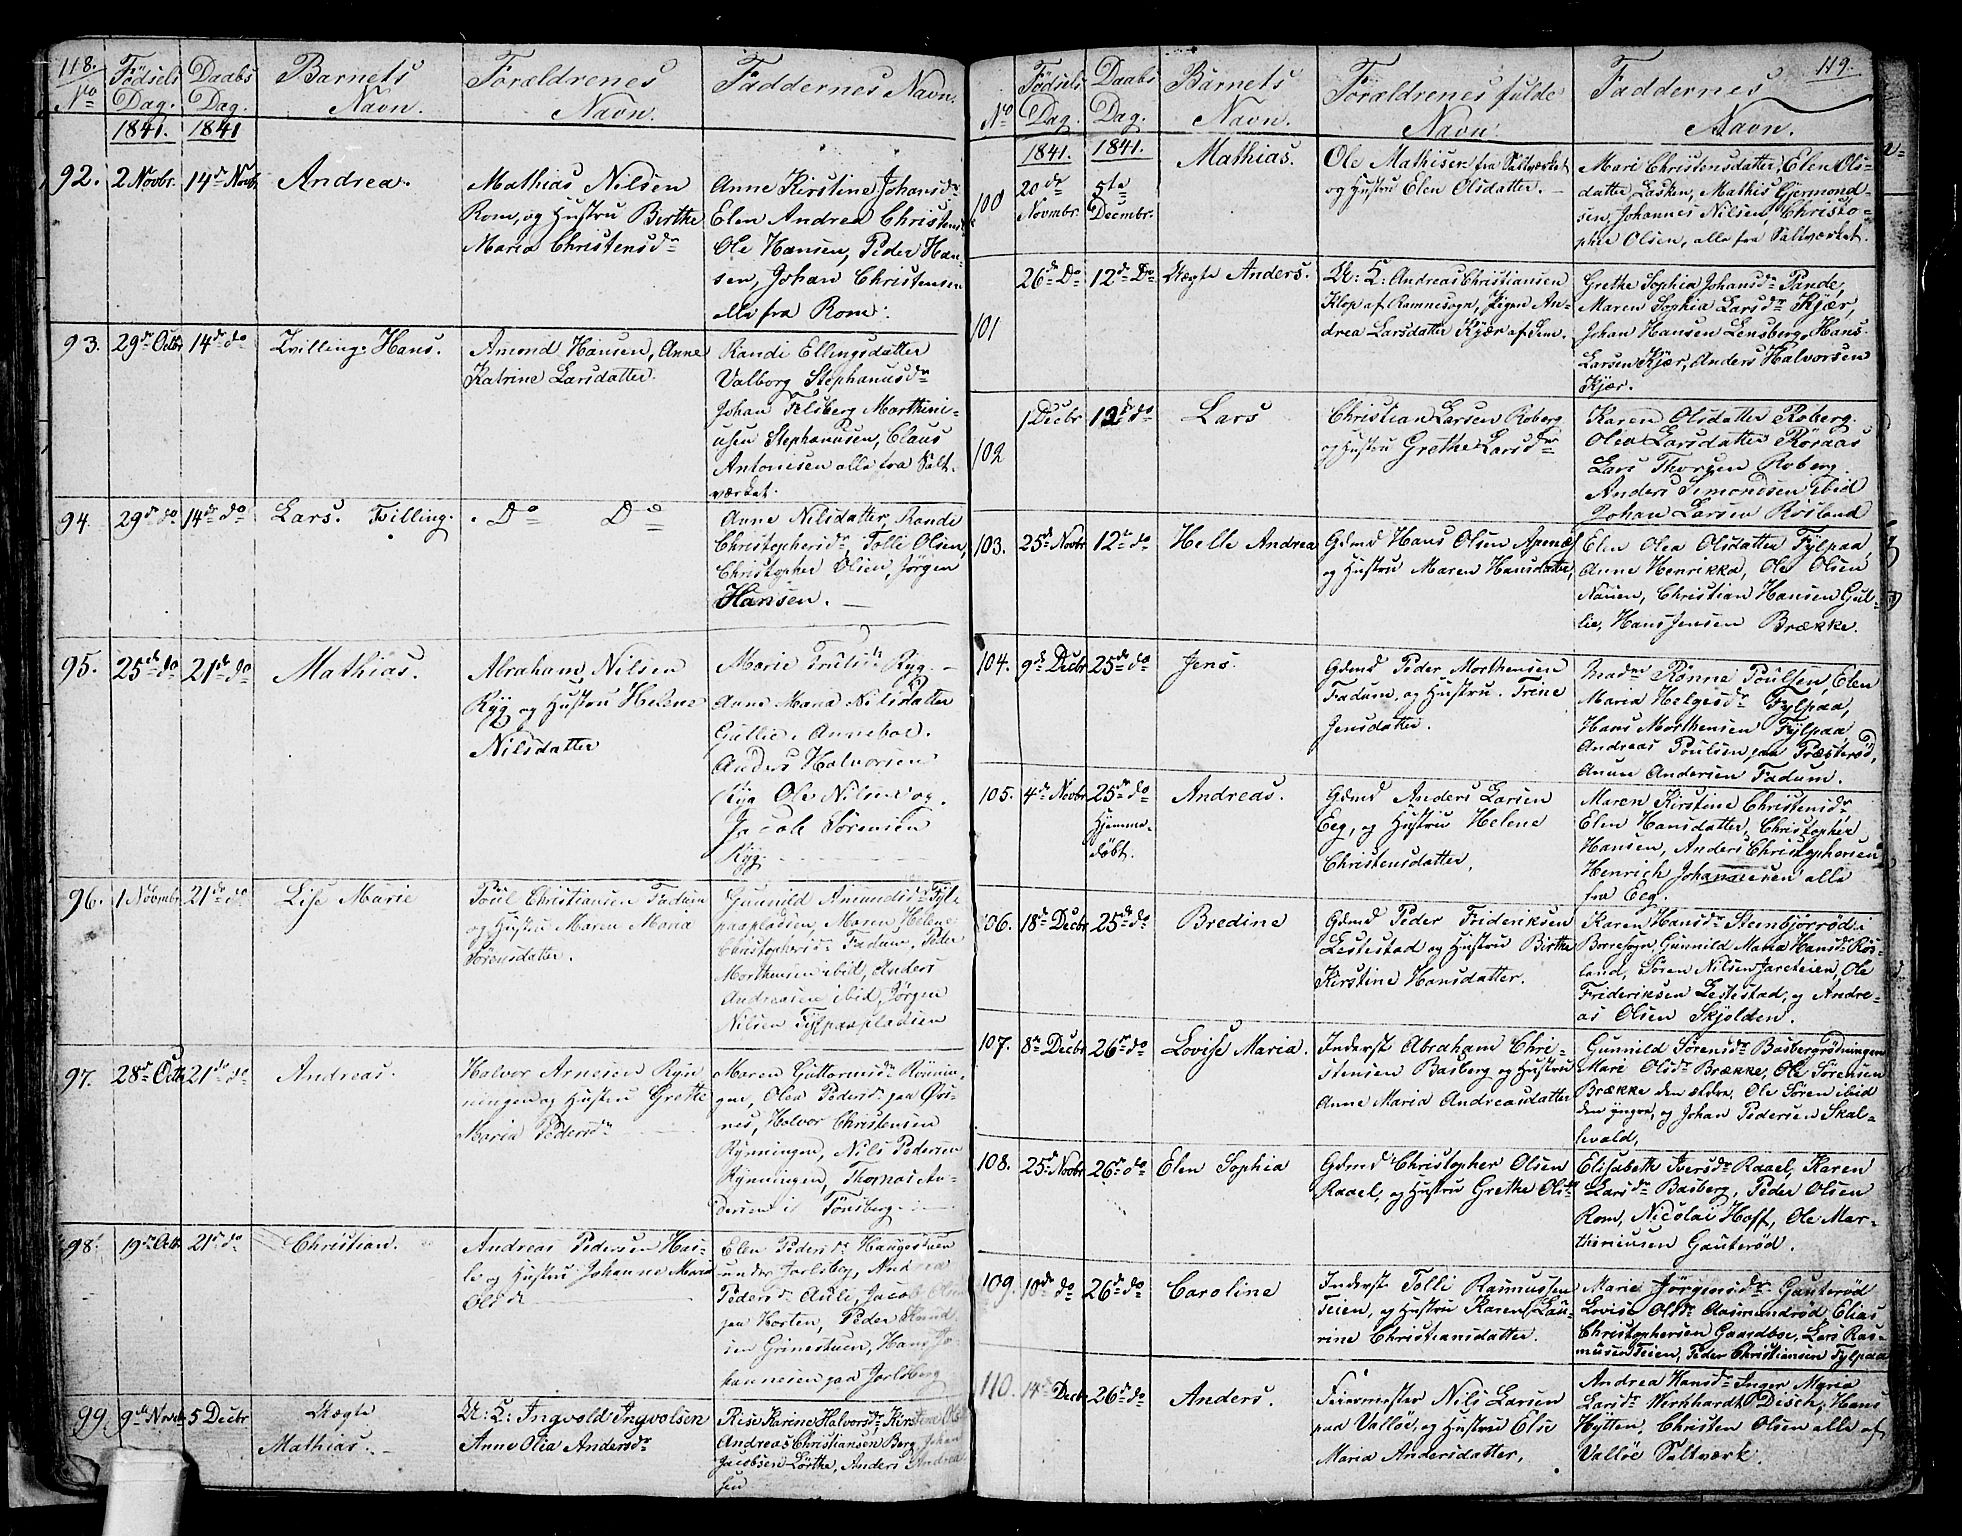 118.
No
Fødsels
Dag.
Daabs
Dag.
Barnets
Navn.
Forældrenes
Navn.
Faddernes Navn.
1841.
1841
92.
2 Novbr.
14de Novbr
Andrea.
Mathias Nilsen
Rom, og Hustru Birthe
Maria Christensdr
Anne Kirstine Johansdr
Elen Andrea Christens
Ole Hansen, Peder Han-
sen, Johan Christensen
alle fra Rom.
93.
29de Octbr
14de do
Tvilling. Hans.
Amond Hansen, Anne
Katrine Larsdatter.
Randi Ellingsdatter
Valborg Stephanusdr
Johan Felsberg Marthini-
usen Stephanusen, Claus
Antonisen alle fra Salt-
værket.
94
29de do
14de do
Lars. Tvilling.
Do Do
Anne Nilsdatter, Randi
Christophersdr, Tolli Olsen,
Christopher Olsen, Jørgen
Hansen.
95.
25de do
21de do
Mathias.
Abraham Nilsen
Ryg og Hustru Helene
Nilsdatter
Marie Trulsdr Ryg.
Anne Maria Nilsdatter
Gullie, Anneboe.
Anders Halvorsen
Ryg Ole Nilsen og
Jacob Sørensen
Ryg.
96.
1 Novmbr
21de do
Lise Marie
Poul Christiansen Fadum
og Hustru Maren Maria
Sørensdatter.
Gunnild Amundsdr Fylp
paapladsen, Maren Helene
Christophersdr Fadum, Peder
Morthensen ibid, Anders
Andreasen ibid, Jørgen
Nilsen Fylpaapladsen
97.
28de Octbr
21de do
Andreas.
Halvor Arnesen Ryn
ningen og Hustru Grethe
Maria Pedersdr
Maren Guttormsdr Rønnin-
gen, Olea Pedersdr paa Øvi-
nes, Halvor Christensen
Rynningen, Nils Pedersen
Rynningen, Thomas An-
dersen i Tønsberg.
98.
19de Octb
21de do
Christian.
Andreas Pedersen Has-
le og Hustru Johanne Maria
Olsdr
Elen Pedersdr Haugestuen
under Jarlsberg, Andrea
Pedersdr Auli, Jacob Olsen
paa Horten, Peder Knud
sen Grinestuen, Hans Jo-
hannesen paa Jarlsberg
99
9de Novbr
5 Decbr
Uægte
Mathias.
U: F: Ingvold Ingvolsen
Anne Olia Andersdr
Rise Karine Halvorsdr, Kirstine Ols
Andreas Christiansen Berg, Johan
Jacobsen Lørthe, Anders Andrea
sen
119.
No
Fødsels
Dag.
Daabs
Dag.
Barnets
Navn.
Forældrenes fulde
Navn.
Faddernes
Navn.
1841.
1841.
100
20de
Novmbr.
5te
Decmbr.
Mathias.
Ole Mathisen fra Saltværket
og Hustru Elen Olsdatter.
Mari Christensdatter, Elen Ols-
datter Lasken, Mathis Gjermond-
sen, Johannes Nilsen, Christo-
phe Olsen, alle fra Saltværket.
101
26de Do
12de Do
Uægte Anders.
U: F: Andreas Christiansen
Klop af Ramnesogn, Pigen An-
drea Larsdatter Kjær af Sem.
Grethe Sophia Johansdr Pande,
Maren Sophia Larsdr Kjær,
Johan Hansen Lensberg, Hans
Larsen Kjær, Anders Halvorsen
Kjær.
102
1 Decbr
12de do
Lars
Christian Larsen Roberg
og Hustru Grethe Larsdr
Karen Olsdatter Roberg.
Olea Larsdatter Røraas
Lars Thorsen Roberg.
Anders Simondsen ibid
Johan Larsen Røsland
103.
25de Novbr
12te do
Helle Andrea
Gdmd Hans Olsen Apenæs
og Hustru Maren Hansdatter,
Elen Olea Olsdatter Fylpaa,
Anne Henrikka, Ole Olsen
Nauen, Christian Hansen Gul-
lie, Hans Jensen Brække.
104.
9de Decbr
25de do
Jens.
Gdmd Peder Morthensen
Fadum, og Hustru. Trine
Jensdatter.
Madme Rønne Poulsen, Elen
Maria Helgesdr Fylpaa,
Hans Morthensen Fylpaa,
Andreas Poulsen paa Præsterød,
Anun Andersen Fadum.
105.
4de Novbr
25de do
Hjemme-
døbt.
Andreas.
Gdmd Anders Larsen
Eeg, og Hustru Helene
Christensdatter,
Maren Kirstine Christensdr
Elen Hansdatter, Christopher
Hansen, Anders Christophersen
Henrich Johannesen alle
fra Eeg.
106.
18de Decbr
25de do
Bredine
Gdmd Peder Frideriksen
Lestestad og Hustru Birthe
Kirstine Hansdatter.
Karen Hansdr Steenbjørrød i
Borresogn, Gunnild Maria Hansdr Røs-
land, Søren Nilsen Jareteien, Ole
Frideriksen Lestestad, og Andre-
as Olsen Skjolden.
107.
8de Decbr
26de do
Lovise Maria.
Inderst Abraham Chri-
stensen Basberg og Hustru
Anne Maria Andreasdatter
Gunnild Sørensdr Basbergrødningen
Mari Olsdr Brække, Ole Sørensen
Brække den ældre, Ole Søren ibid
den yngre, og Johan Pedersen Skal-
levald,
108.
25de Novbr
26de do
Elen Sophia
Gdmd Christopher Olsen
Raael, og Hustru Grethe Olsdr
Elisabeth Iversdr Raael, Karen
Larsdr Basberg, Peder Olsen
Rom, Nicolai Hoff, Ole Mar-
theniusen Gauterød.
109.
10de do
26de do
Caroline
Inderst Tolli Rasmussen
Teien, og Hustru Karen Lau-
rine Christiansdatter.
Marie Jørgensdr Gauterød
Lovise Olsdr Aasmundrød, Elias
Christophersen Gaasdboe, Lars Ras-
musen Teien, Peder Christiansen Fylpaa
110.
14de Decbr
26de do
Anders.
Fiirmester Nils Larsen
paa Valløe, og Hustru Else
Maria Andersdatter,
Andrea Hansdr Inger Maria
Larsdr Wernhardt Disch, Hans
Hytten, Christen Olsen alle af
Valløe Saltværk.